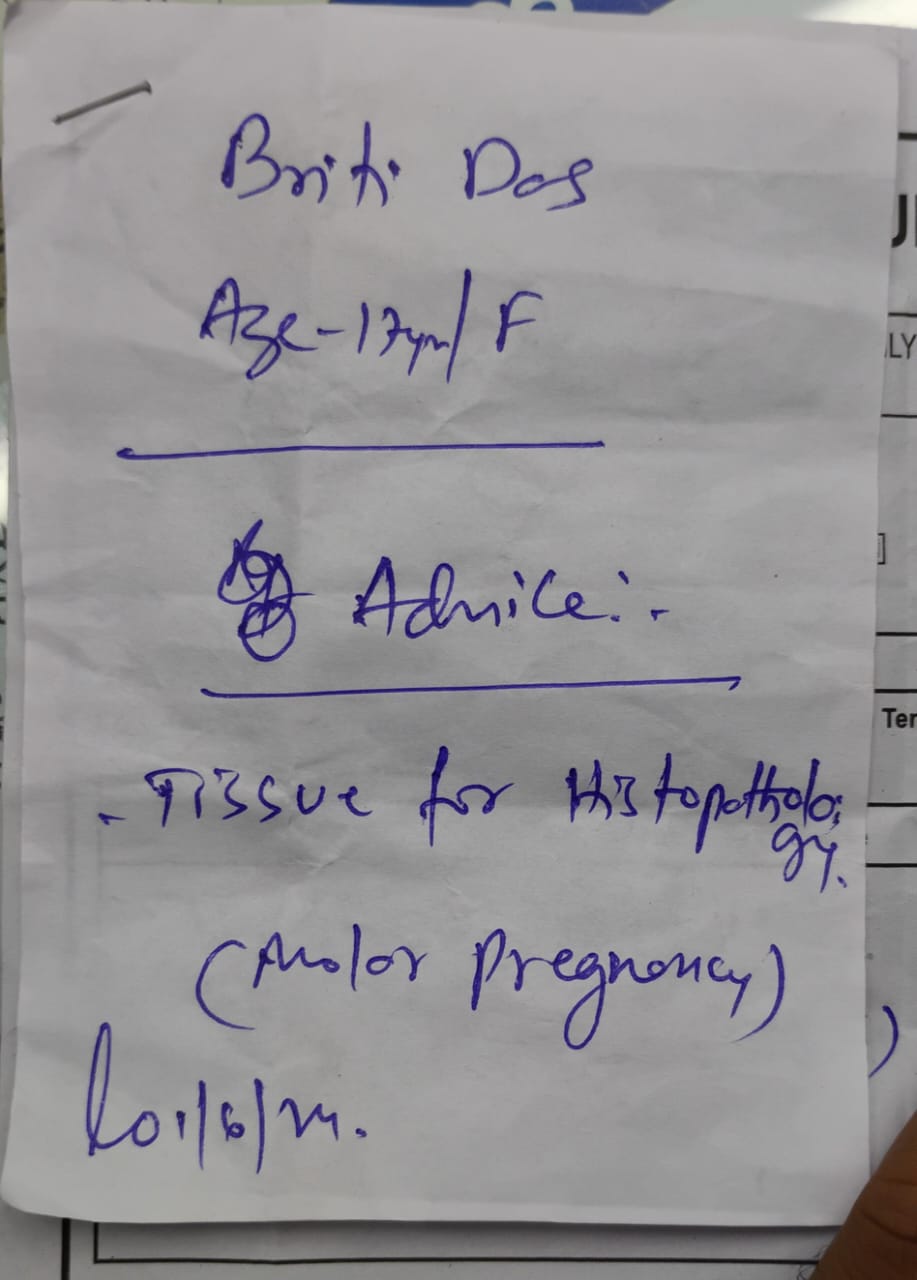 Briti Das
Age - 17yrs/ F
Advice:-
- Tissue for Histopatholo-
gy.
(Molar Pregnancy)
01/6/24.
LY
Ter